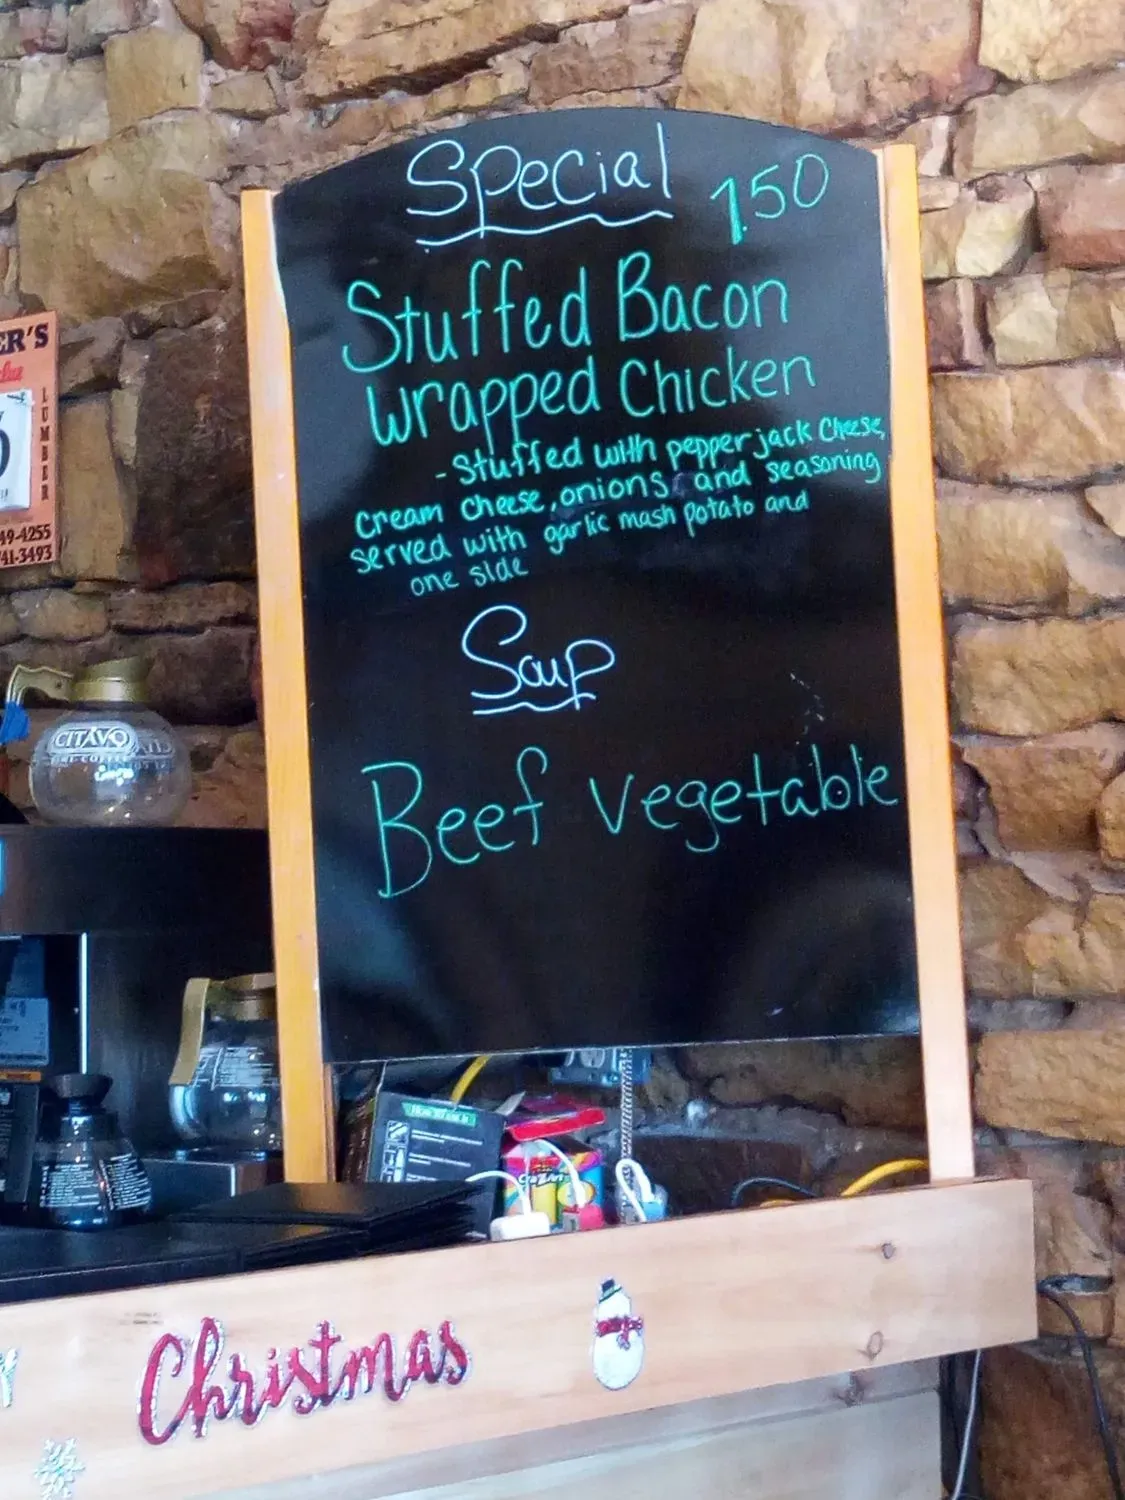 Special 7.50
Stuffed Bacon
Wrapped Chicken
- Stuffed with pepper jack cheese,
cream cheese, onions and seasoning
served with garlic mash potato and
one side
Soup
Beef Vegetable
ER'S
LUMBER
49-4255
41-3493
CITAVO
Christmas